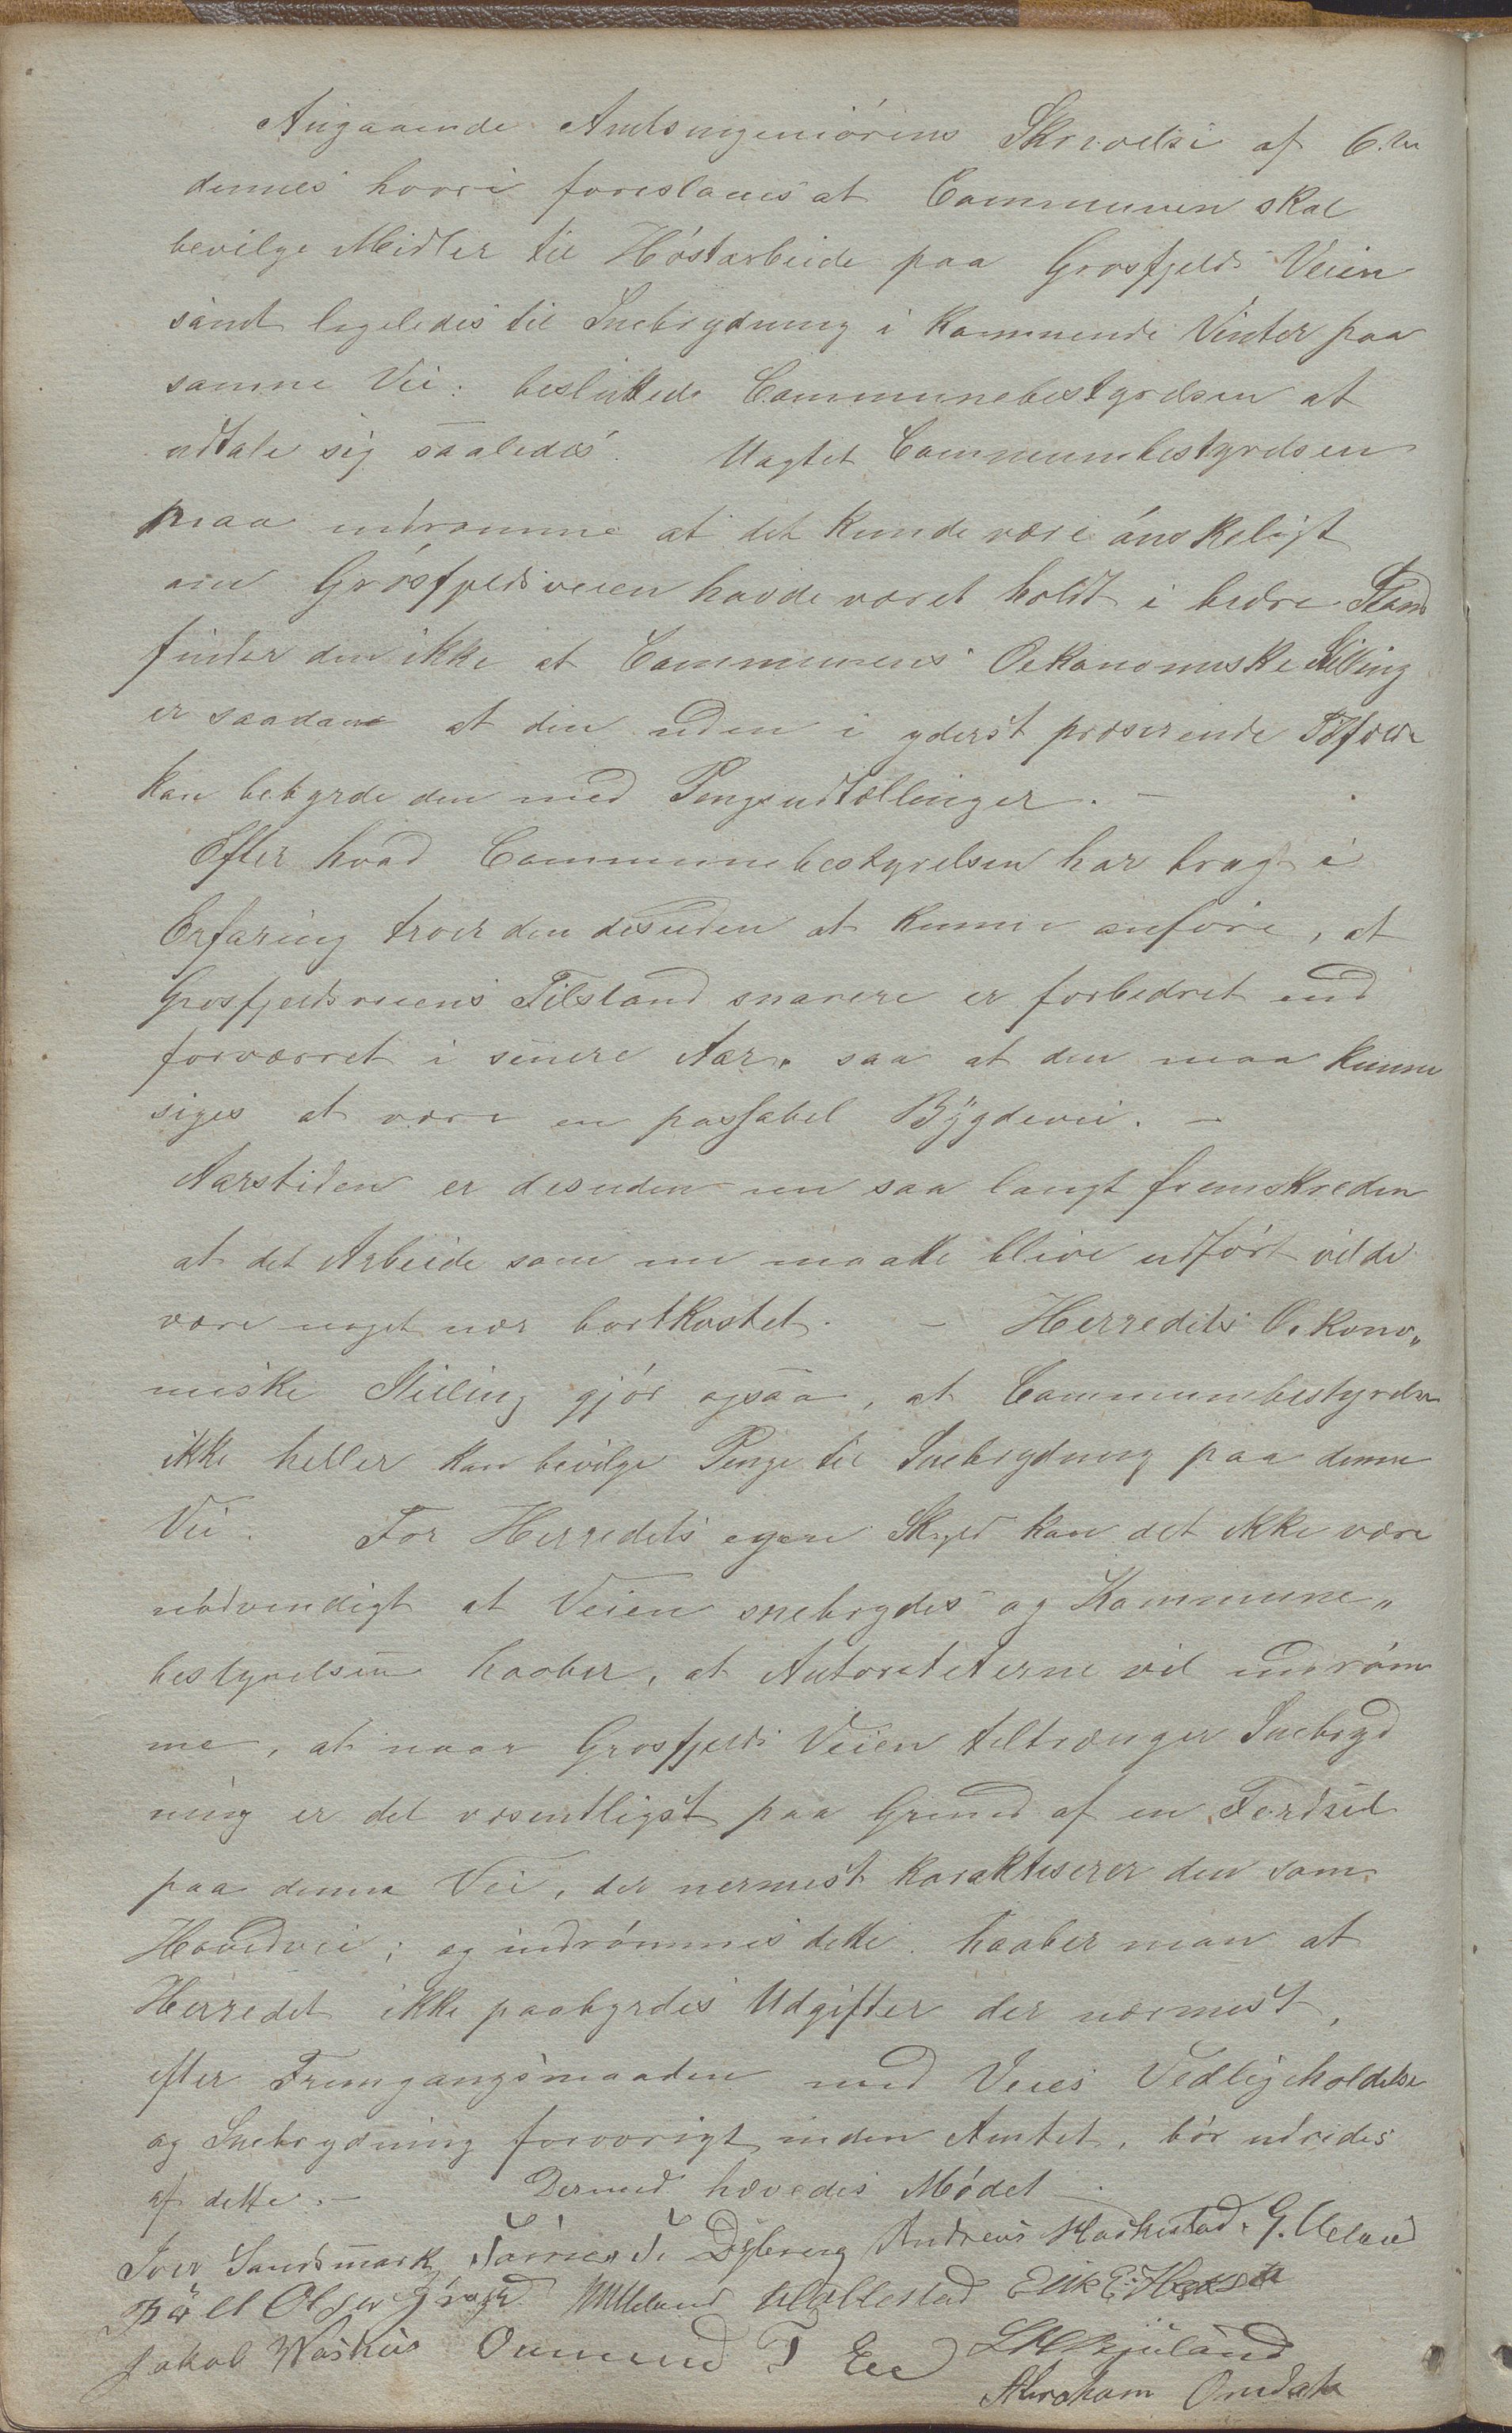 Angaaende Amtsingeniórens Skrivelse af 6.te
dennes hvori foreslaaes at Communen skal
bevilge Midler til Hóstarbeide paa Grosfjelds Veien
samt ligeledes til Snebrydning i kommende Vinter paa
samme Vei: besluttede Communebestyrelsen at
udtale sig saaledes: Uagtet Communebestyrelsen
maa indrømme at det kunde være ónskeligt
om Grósfjeldsveien havde været holdt i bedre Stand
finder den ikke at Communens Oekonomiske Stilling
er saadan at den uden i yderst presserende Tilfælde
kan bebyrde den med Pengeudtællinger. –
Efter hvad Communebestyrelsen har bragt i
Erfaring troer den desuden at kunne anfóre, at
Grosfjeldsveiens Tilstand snarere er forbedret end
forværret i senere Aar, saa at den maa kunne
siges at være en passabel Bÿgdevei. –
Aarstiden er desuden nu saa langt fremskreden
at det Arbeide som nu maatte blive udfórt vilde
være noget nær bortkastet. – Herredets Oekono„
miske Stilling gjór ogsaa, at Communebestyrelsen
ikke heller kan bevilge Penge til Snebrydning paa denne
Vei. For Herredets egen Skyld kan det ikke være
nódvendigt at Veien snebrydes og Kommune„
bestyrelsen haaber, at Autoriteterne vil indróm
me, at naar Grosfjelds Veien tiltrænger Snebryd
ning er det væsentligst paa Grund af en Ferdsel
paa denne Vei, der nermest karaktiserer den som
Hovedvei; og indrómmes dette haaber man at
Herredet ikke paabyrdes Udgifter der nærmest,
efter Fremgangsmaaden med Veies Vedligeholdelse
og Snebrydning forøvrigt inden Amtet, bór udredes
af dette. – Dermed hævedes Módet –
Iver Sandsmark Tórres T. Dÿbeng Andreas Haakestad. G. Ueland
Pöll Olsen Eik E.
Jakob Omund T Eee
Abraham Omdal